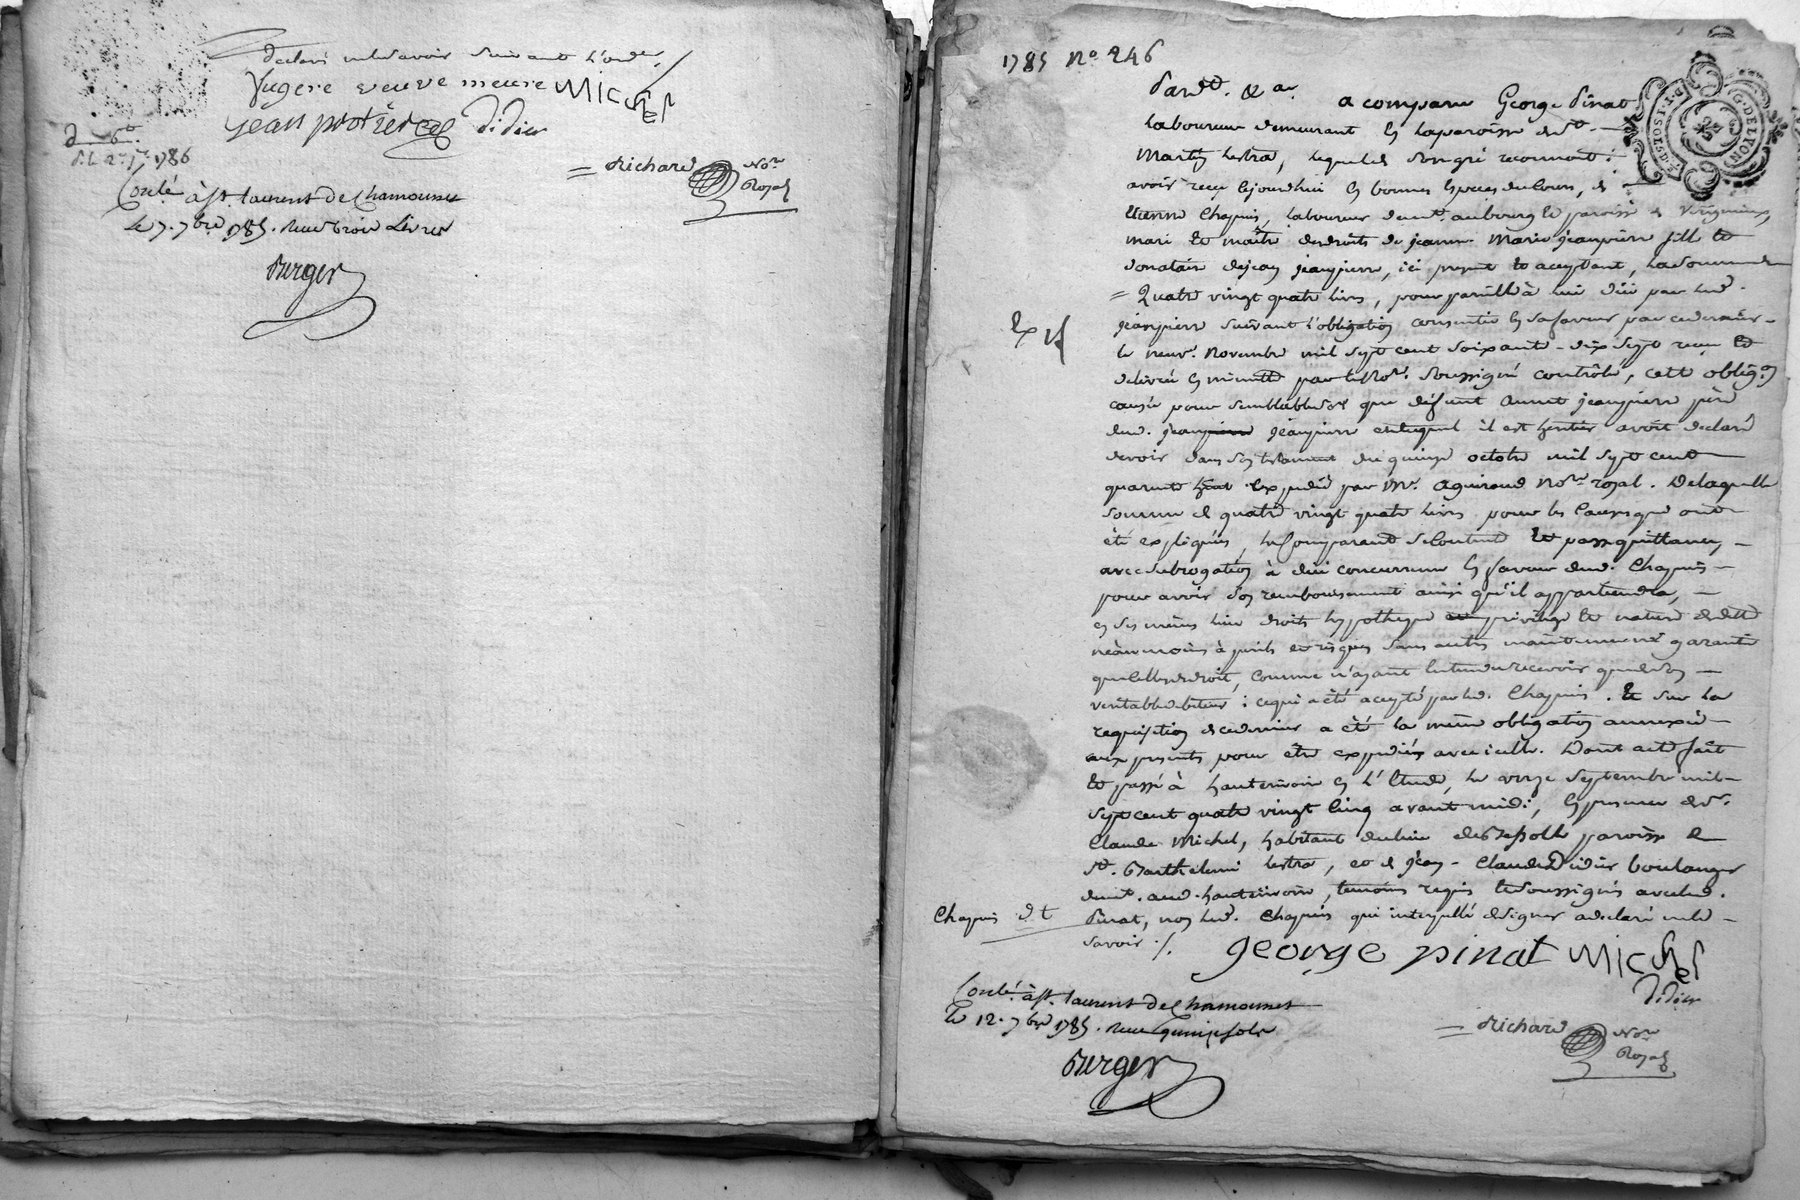 declaré ne le savoir suivant l'ord.ce /
fugere veuve meure Michel
jean protiere Didier
d 6d
d.l. 2e j.r 1786
= Richard Nore
Royal
Conlé à St. Laurent de Chamousset
le 7. 7bre 1785. Reçu trois Livres
Berger
1785 No 246
Pardt. &a. a comparu George Pinat
laboureur demeurant en la paroisse de St.
Martin lestra, lequel de son gré reconnoit
avoir reçu cejourdhui en bonnes especes du cours, de
Etienne Chapuis, laboureur demt. au bourg et paroisse de Virigneux,
mari et maitre des droits de jeanne Marie jeanpierre fille et
donataire de jean jeanpierre, ici present et acceptant, la somme de
= Quatre vingt quatre livres, pour pareille à lui düe par led.
jeanpierre suivant l'obligation consentie en sa faveur par ce dernier
le neuf. Novembre mil sept cent soixante-dix sept reçu et
Ex
delivré en minutte par le Nore. soussigné contrôlé, cette obligon
causée pour semblable somme que defunt annet jeanpierre père
dud. jeanpierre jeanpierre et duquel il est heritier avoit declaré
devoir dans son testament du quinze octobre mil sept cent
quarante expedié par Me. Nore. royal. De laquelle
somme de quatre vingt quatre livres pour les causes que ont
été expliquées, le comparant se contente et passe quittance,
avec subrogation à düe concurrence en faveur dud. Chapuis
pour avoir son remboursement ainsi qu'il appartiendra,
en ses mêmes lieu droits hypotheque privilege et nature de dette
néanmoins à perils et risques sans autre maintenue ni garantie
que celle de droit, comme n'ayant entendu recevoir que de son
veritable debiteur; ce qui a été accepté par led. Chapuis. Et sur la
requisition de ce dernier a été la même obligation annexée
aux presentes pour être expediée avec icelle. Dont acte fait
et passé à hauterivoire en l'Etude, le onze septembre mil
sept cent quatre vingt cinq avant midi, en presence de sr.
Claude Michel, habitant du lieu de paroisse de
St. Barthelemi lestra, et de jean-Claude Didier boulanger
demt. aud. hauterivoire, temoins requis et soussignés avec led.
Chapuis d t Pinat, non led. Chapuis qui interpellé de signer a declaré ne le
savoir ./.
george pinat Michel
Didier
= Richard Nore
Royal
Conlé à St. Laurent de Chamousset
le 12. 7bre 1785. reçu quinze sols
Berger